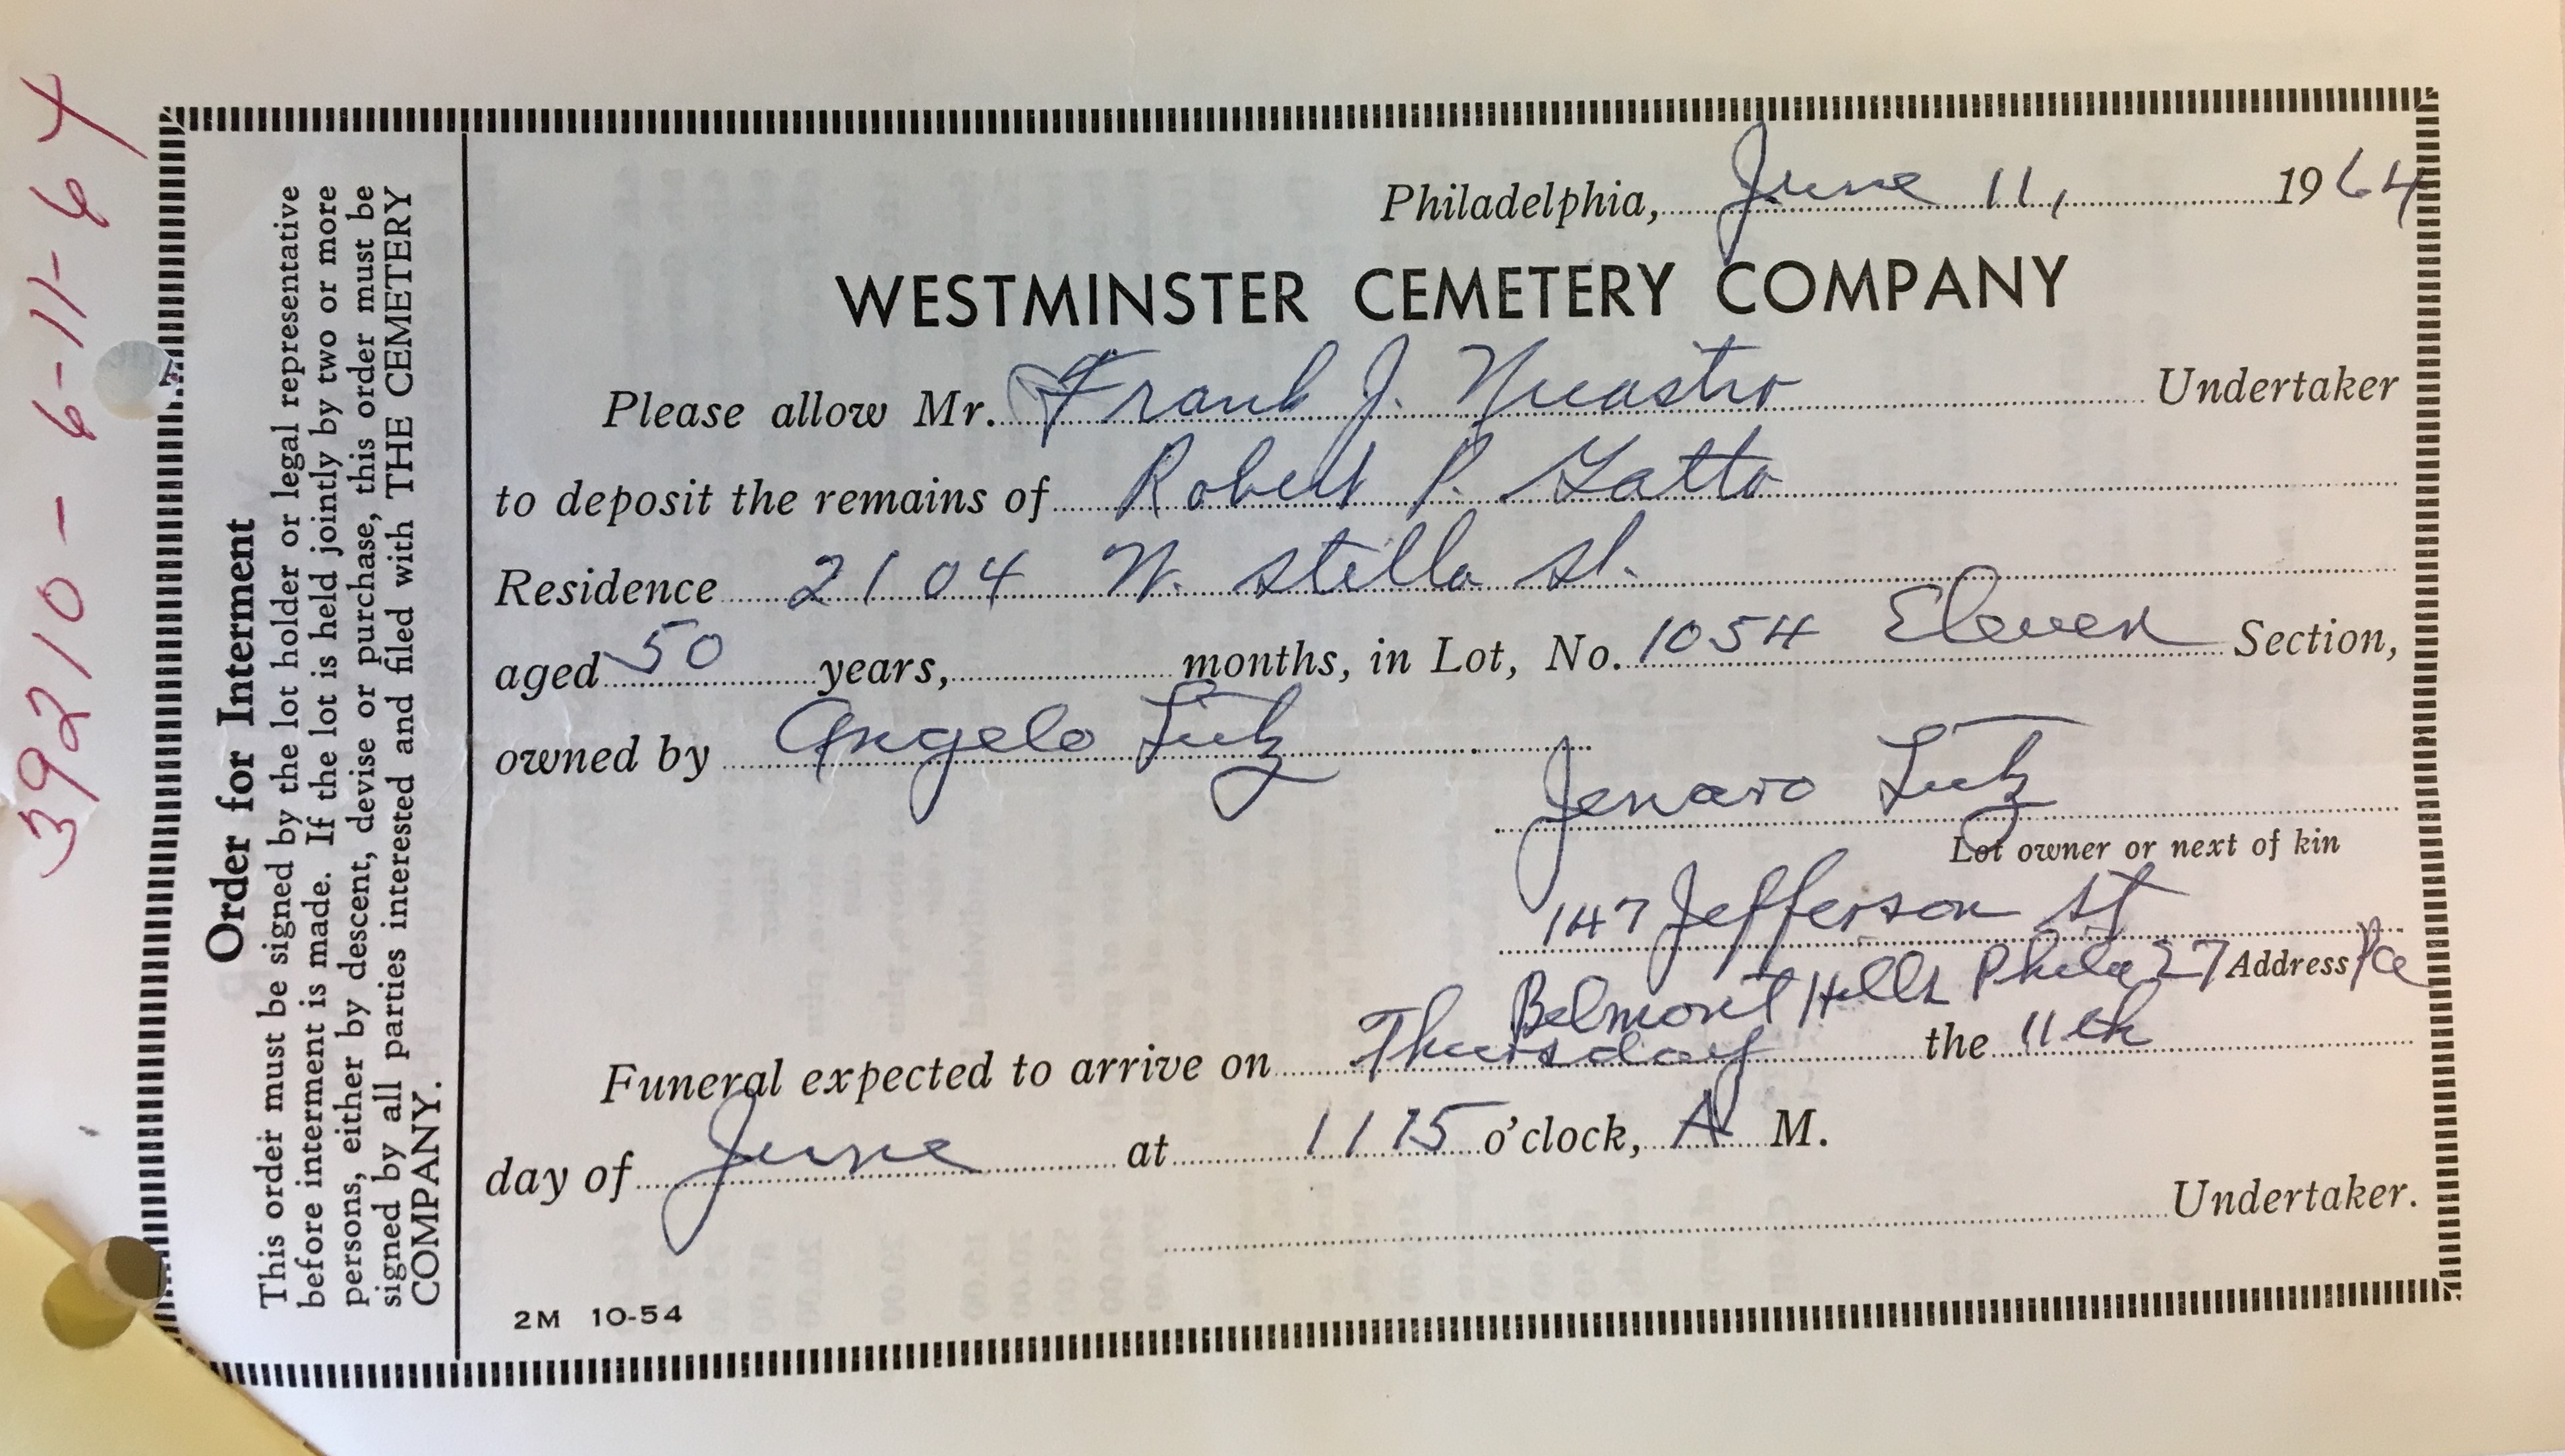 39210 - 6-11-64
Order for Interment
This order must be signed by the lot holder or legal representative
before interment is made. If the lot is held jointly by two or more
persons, either by descent, devise or purchase, this order must be
signed by all parties interested and filed with THE CEMETERY
COMPANY.
Philadelphia, June 11, 1964
WESTMINSTER CEMETERY COMPANY
Please allow Mr. Frank J. Nicastro Undertaker
to deposit the remains of Robert P. Gatto
Residence 2104 W. Stella St.
aged 50 years, months, in Lot, No. 1054 Eleven Section,
owned by Angelo Lutz
Jenaro Lutz
Lot owner or next of kin
147 Jefferson St
Belmont Hills Phila 27 Address Pa
Funeral expected to arrive on Thursday the 11th
day of June at 11 15 o'clock, A M.
Undertaker.
2M 10-54